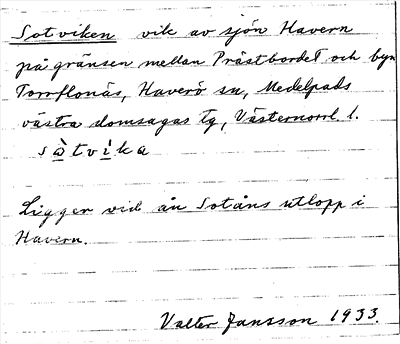 Sotviken vik av sjön Havern
på gränsen mellan Prästbordet och byn
Torrflonäs, Haverö sn, Medelpads
västra domsagas tg, Västernorrl. l.
sòtvìka
Ligger vid ån Sotåns utlopp i
Havern.
Valter Jansson 1933.